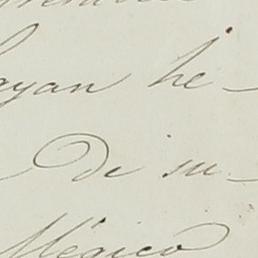 hayan he-
De su-
Mégico